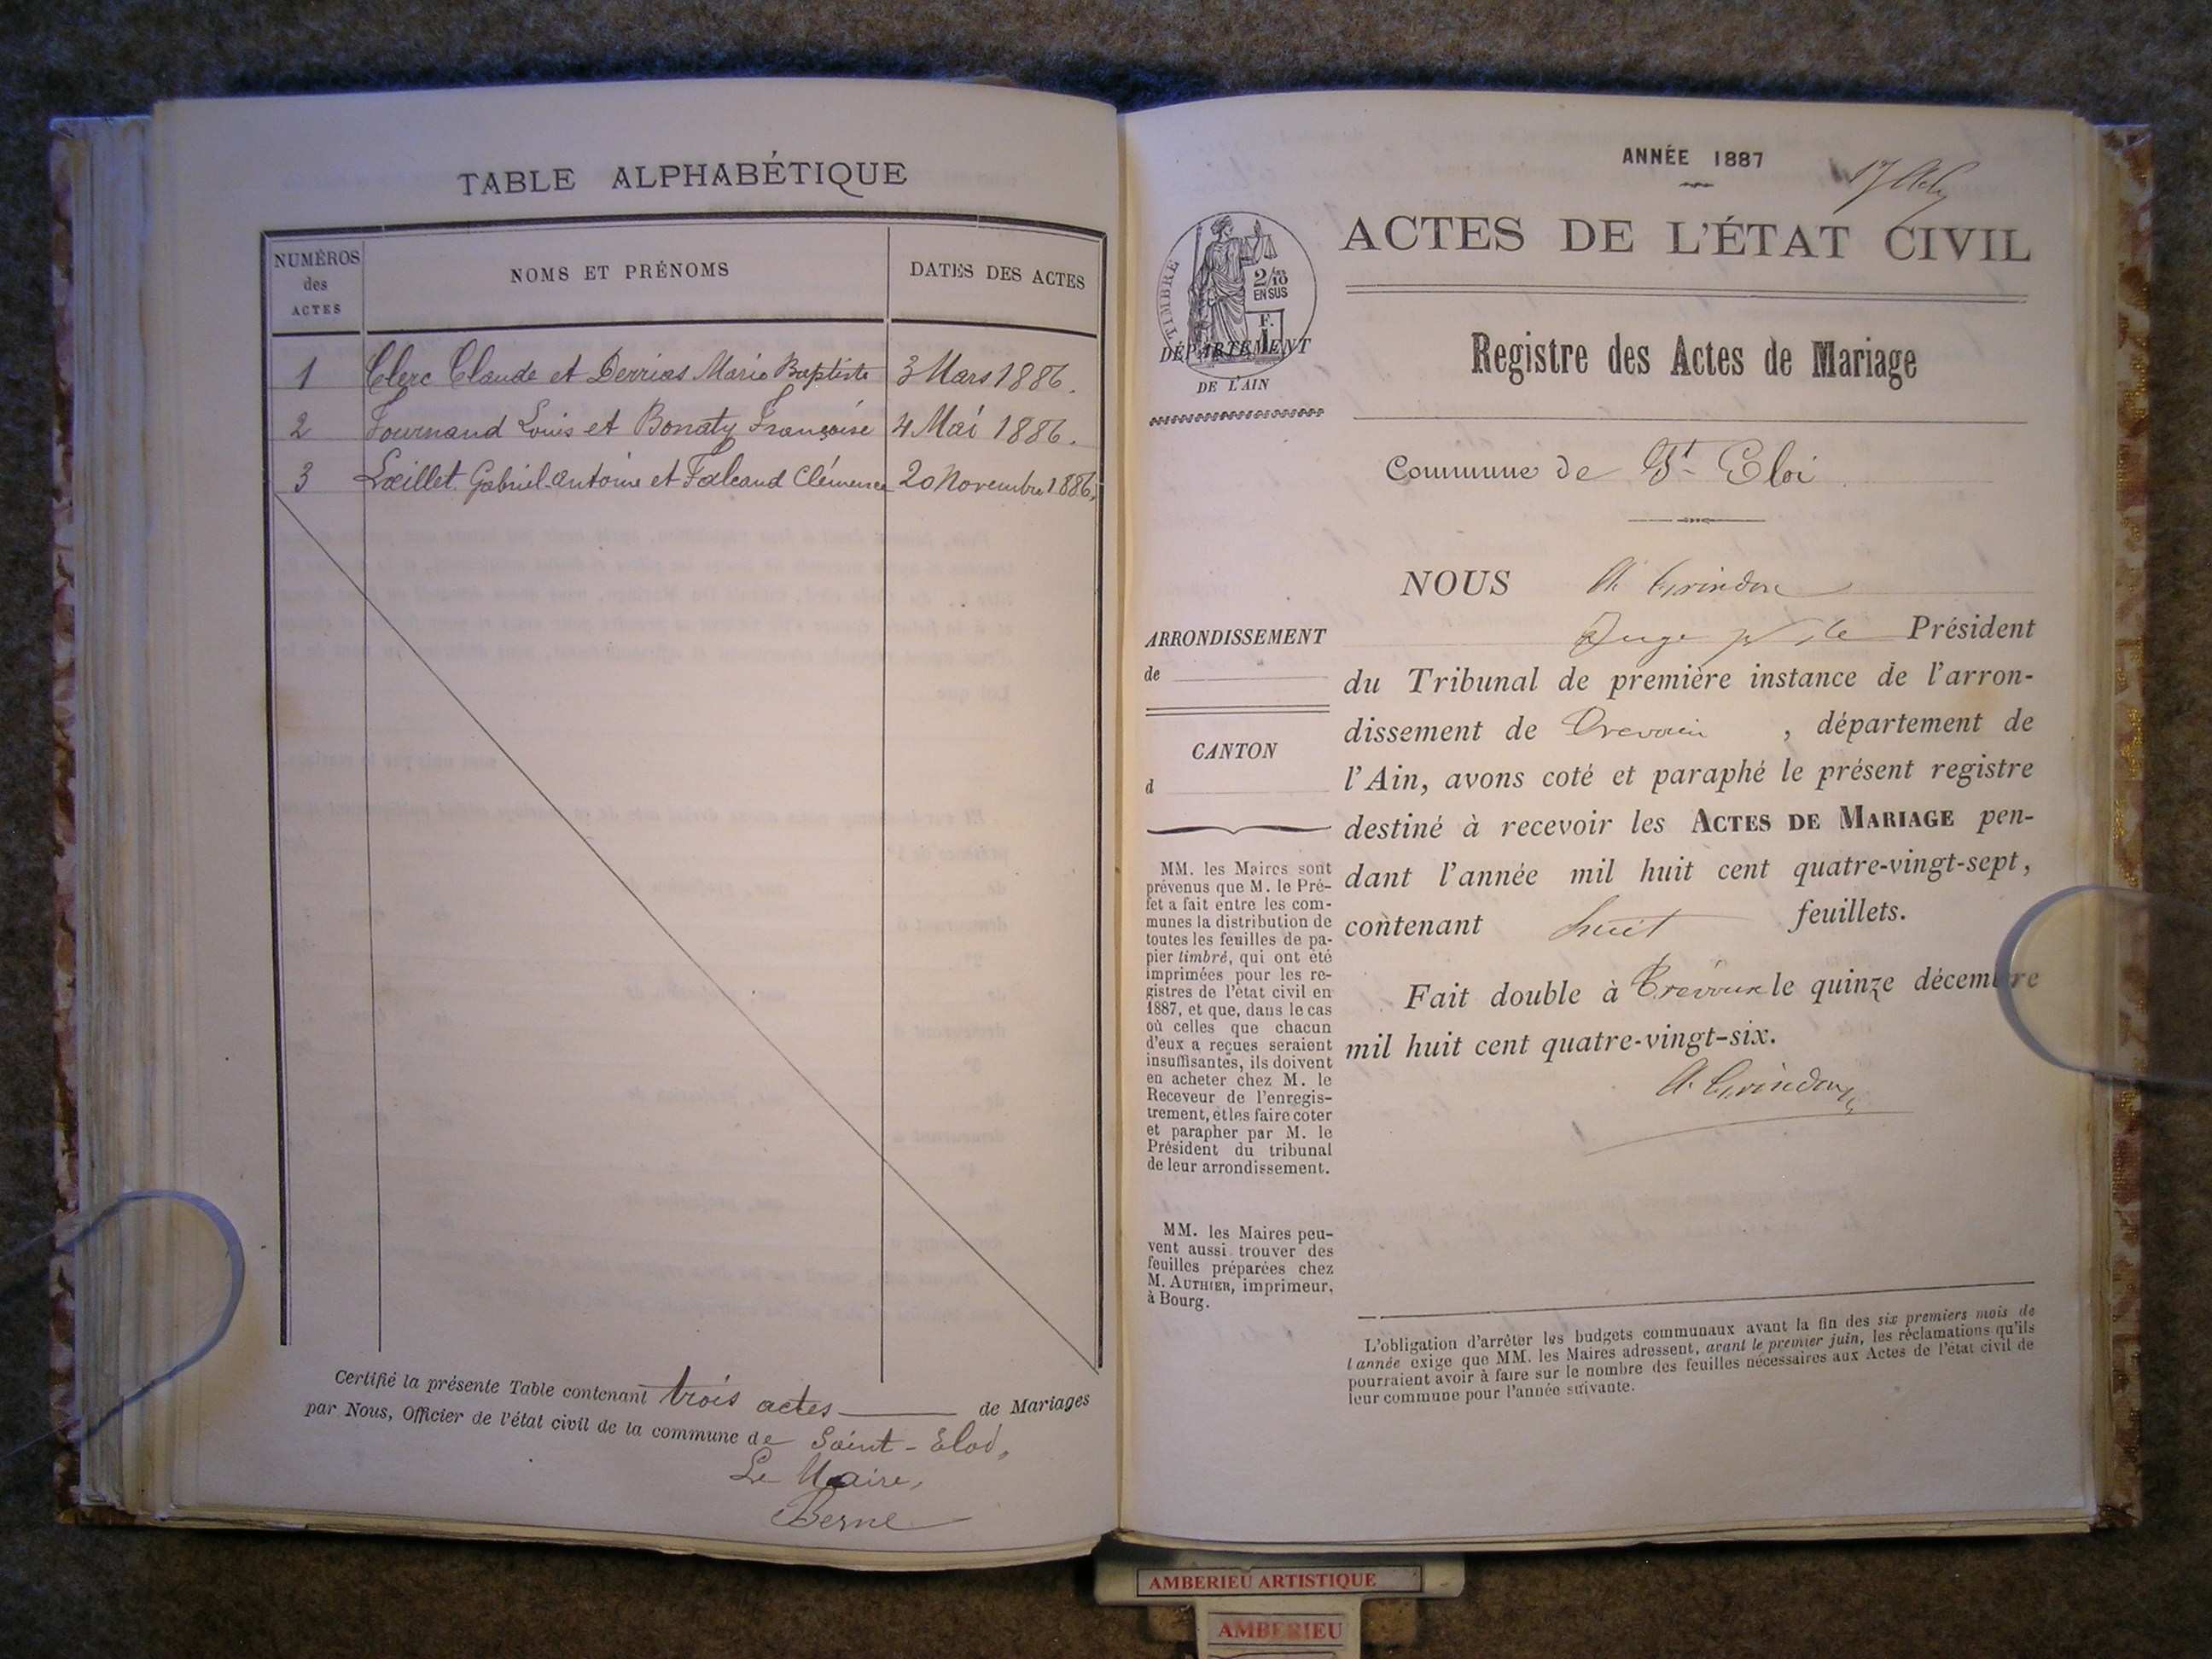 TABLE ALPHABÉTIQUE
NUMÉROS des ACTES
NOMS ET PRÉNOMS
DATES DES ACTES
1 Clerc Claude et Derrias Marie Baptiste 3 Mars 1886.
2 Fournand Louis et Bonaty Françoise 4 Mai 1886.
3 Lœillet Gabriel-Antoine et Falcand Clémence 20 Novembre 1886.
Certifié la présente Table contenant trois actes de Mariages
par Nous, Officier de l'état civil de la commune de Saint-Eloi,
Le Maire,
Berne
ANNÉE 1887
ACTES DE L'ÉTAT CIVIL
TIMBRE
2/10
EN SUS
F.
1
DÉPARTEMENT
DE L'AIN
Registre des Actes de Mariage
Commune de St Eloi
ARRONDISSEMENT
de
CANTON
d
MM. les Maires sont
prévenus que M. le Pré-
fet a fait entre les com-
munes la distribution de
toutes les feuilles de pa-
pier timbré, qui ont été
imprimées pour les re-
gistres de l'état civil en
1887, et que, dans le cas
où celles que chacun
d'eux a reçues seraient
insuffisantes, ils doivent
en acheter chez M. le
Receveur de l'enregis-
trement, et les faire coter
et parapher par M. le
Président du tribunal
de leur arrondissement.
MM. les Maires peu-
vent aussi trouver des
feuilles préparées chez
M. AUTHIER, imprimeur,
à Bourg.
NOUS A. Grindon
Juge pr le Président
du Tribunal de première instance de l'arron-
dissement de Trévoux, département de
l'Ain, avons coté et paraphé le présent registre
destiné à recevoir les ACTES DE MARIAGE pen-
dant l'année mil huit cent quatre-vingt-sept,
contenant huit feuillets.
Fait double à Trévoux le quinze décembre
mil huit cent quatre-vingt-six.
A. Grindon
L'obligation d'arrêter les budgets communaux avant la fin des six premiers mois de
l'année exige que MM. les Maires adressent, avant le premier juin, les réclamations qu'ils
pourraient avoir à faire sur le nombre des feuilles nécessaires aux Actes de l'état civil de
leur commune pour l'année suivante.
AMBERIEU ARTISTIQUE
AMBERIEU